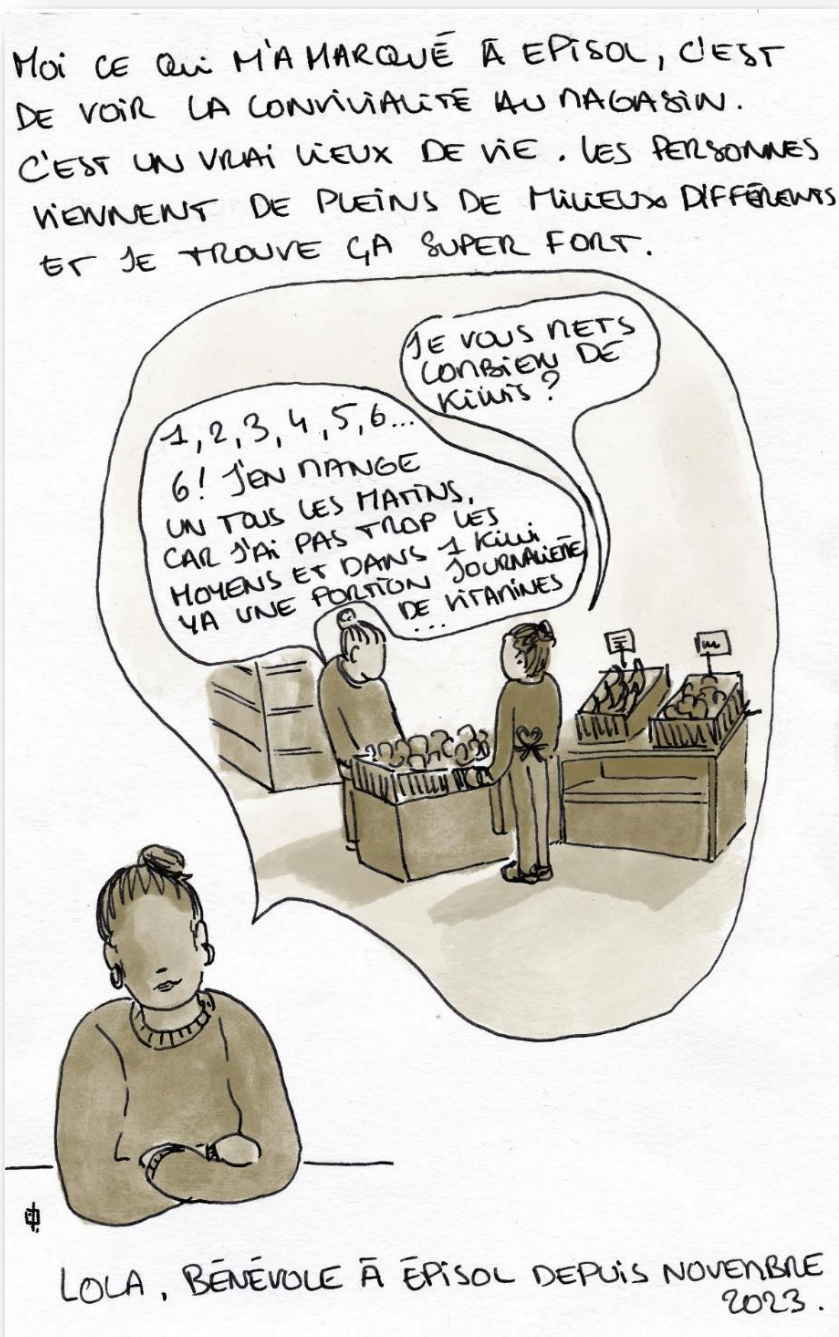 MOI CE QUI M'A MARQUÉ À EPISOL, C'EST
DE VOIR LA CONVIVIALITÉ AU MAGASIN.
C'EST UN VRAI LIEUX DE VIE. LES PERSONNES
VIENNENT DE PLEINS DE MILIEUX DIFFÉRENTS
ET JE TROUVE ÇA SUPER FORT.
JE VOUS METS
COMBIEN DE
KIWIS ?
1, 2, 3, 4, 5, 6...
6! J'EN MANGE
UN TOUS LES MATINS,
CAR J'AI PAS TROP LES
MOYENS ET DANS 1 KIWI
YA UNE PORTION JOURNALIÈRE
DE VITAMINES
...
LOLA, BÉNÉVOLE À ÉPISOL DEPUIS NOVEMBRE
2023.